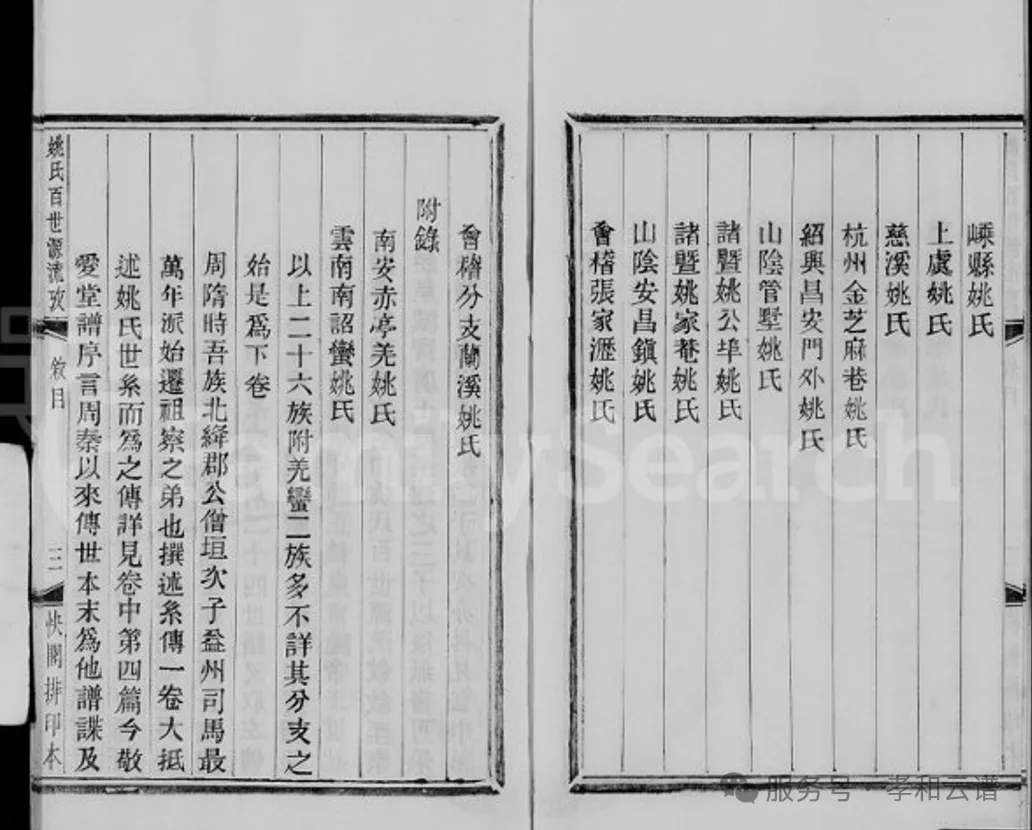 嵊縣姚氏
上虞姚氏
慈溪姚氏
杭州金芝麻巷姚氏
紹興昌安門外姚氏
山陰管墅姚氏
諸暨姚公埠姚氏
諸暨姚家菴姚氏
山陰安昌鎮姚氏
會稽張家瀝姚氏
會稽分支蘭溪姚氏
附錄
南安赤亭羌姚氏
雲南南詔蠻姚氏
以上二十六族附羌蠻二族多不詳其分支之
始是爲下卷
周隋時吾族北絳郡公僧垣次子益州司馬最
萬年派始遷祖察之弟也撰述系傳一卷大抵
述姚氏世系而爲之傳詳見卷中第四篇今敬
愛堂譜序言周秦以來傳世本末爲他譜諜及
姚氏百世源流攷
敘目
三
快閣排印本
FamilySearch
服务号·孝和云谱